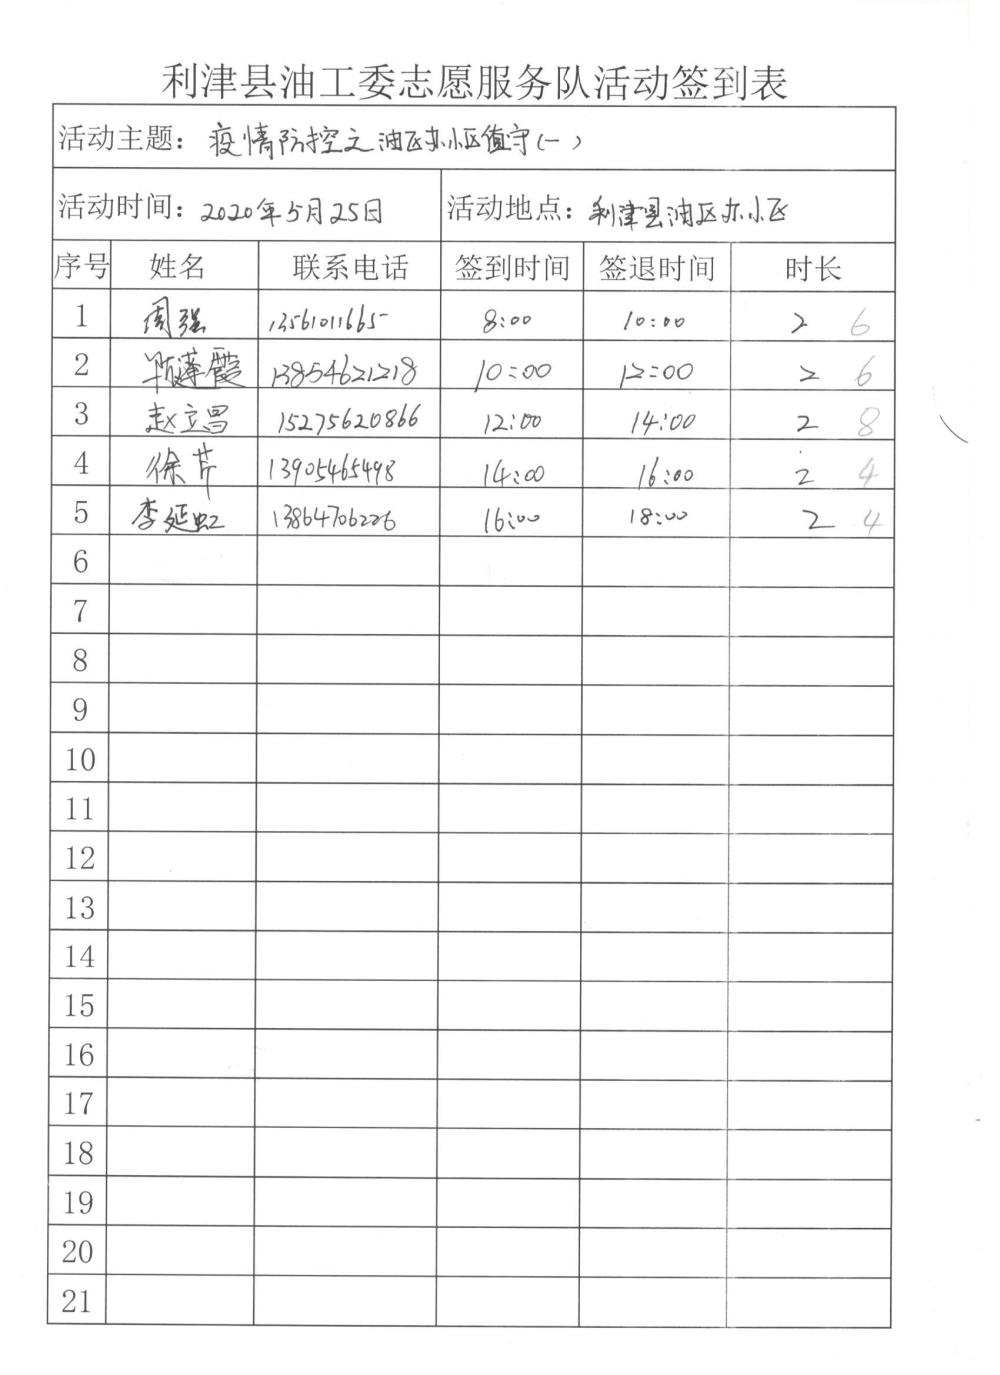 利津县油工委志愿服务队活动签到表
活动主题：疫情防控之油区办小区值守(一)
活动时间：2020年5月25日 活动地点：利津县油区办小区
序号 姓名 联系电话 签到时间 签退时间 时长
1 周强 13561011665 8:00 10:00 2 6
2 莲霞 13854621218 10:00 12:00 2 6
3 赵立昌 15275620866 12:00 14:00 2 8
4 徐芹 13905465498 14:00 16:00 2 4
5 李延虹 13864706226 16:00 18:00 2 4
6
7
8
9
10
11
12
13
14
15
16
17
18
19
20
21